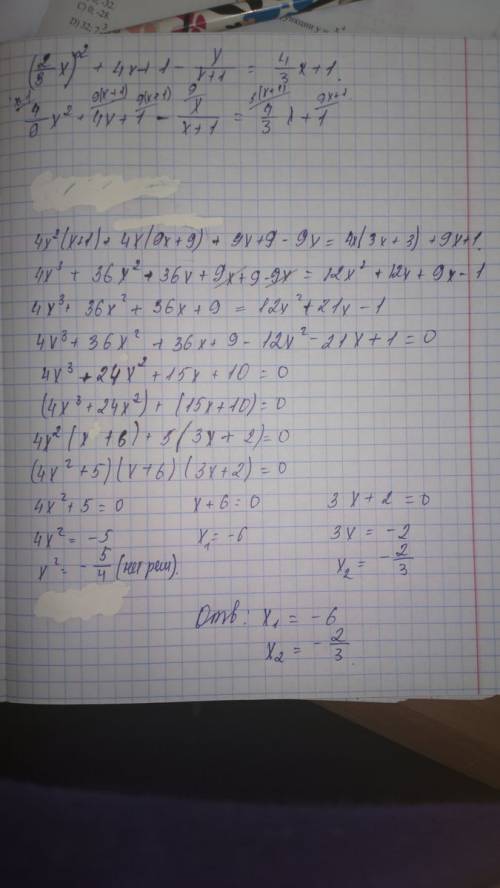 C) 0; -28.
(2/3 x)² + 4x + 1 - x/(x+1) = 4/3 x + 1.
9(x+1) 9(x+1) 9 9x+1
4/9 x² + 4x + 1 - x/(x+1) = 4/3 x + 1
4x²(x+1) + 4x(9x+9) + 9x+9 - 9x = 4x(3x+3) + 9x+1.
4x³ + 36x² + 36x + 9x+9-9x = 12x² + 12x + 9x - 1
4x³ + 36x² + 36x + 9 = 12x² + 21x - 1
4x³ + 36x² + 36x + 9 - 12x² - 21x + 1 = 0
4x³ + 24x² + 15x + 10 = 0
(4x³ + 24x²) + (15x + 10) = 0
4x²(x + 6) + 5(3x + 2) = 0
(4x² + 5)(x + 6)(3x + 2) = 0
4x² + 5 = 0 x + 6 = 0 3x + 2 = 0
4x² = -5 x₁ = -6 3x = -2
x² = -5/4 (нет реш). x₂ = -2/3
Отв: x₁ = -6
x₂ = -2/3